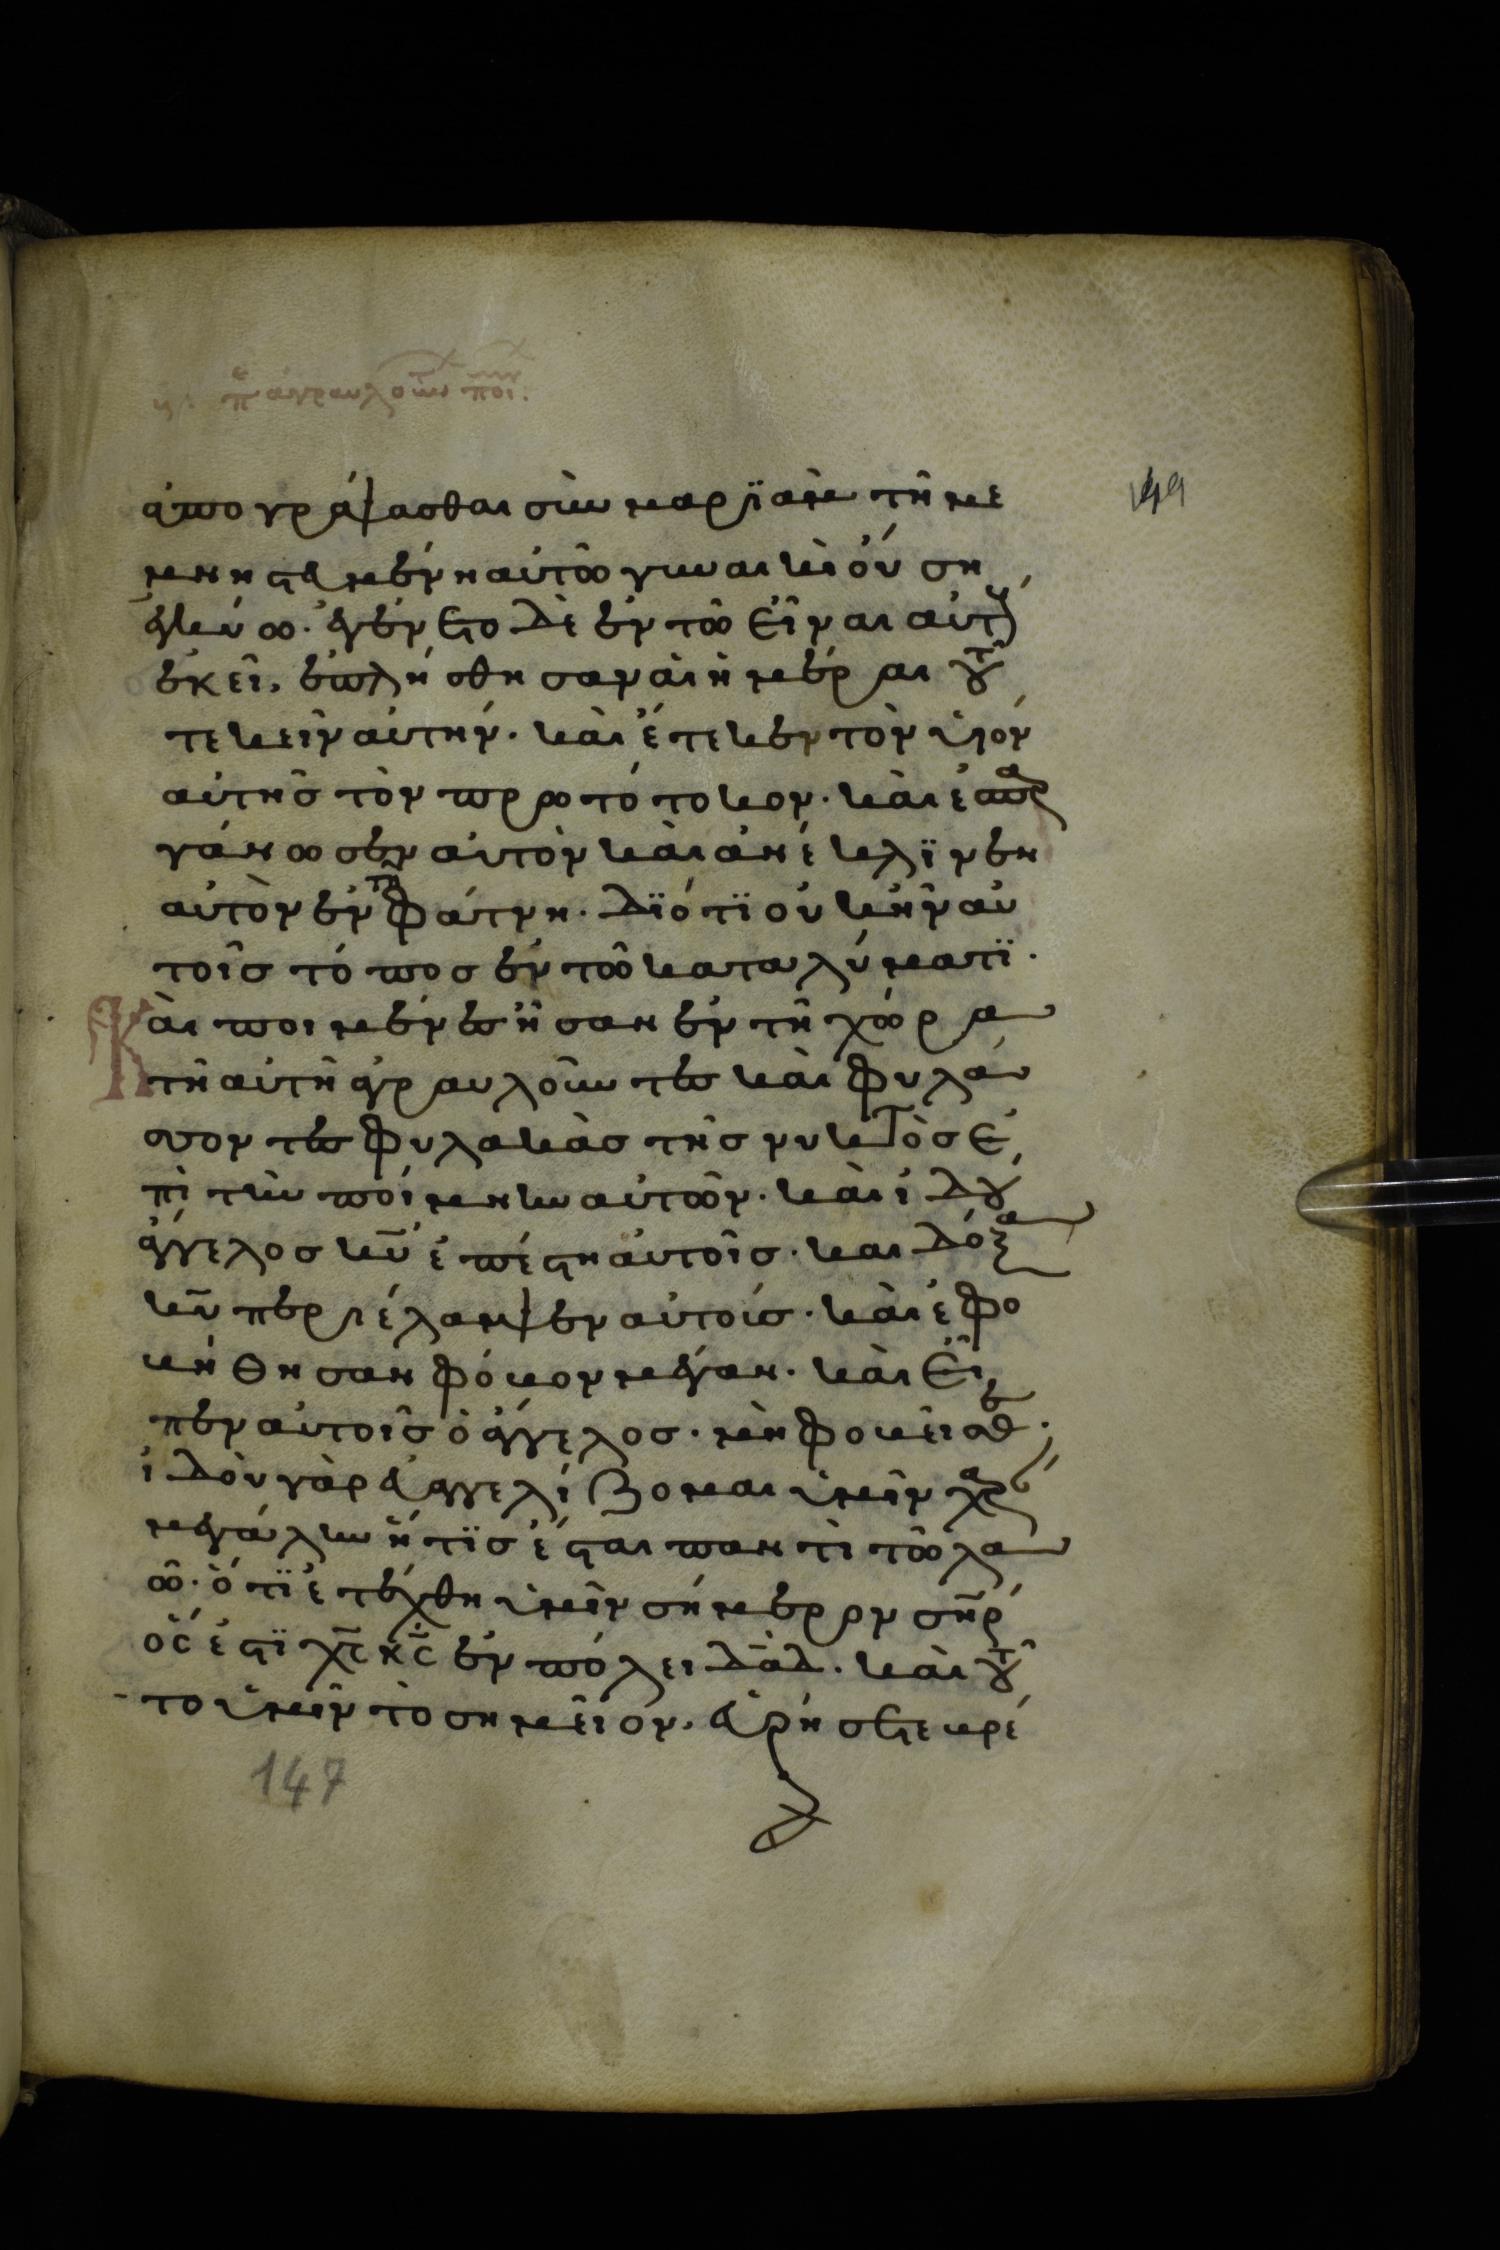 π αγραυλούντων ποι.
149
ἀπογράψασθαι σὺν μαρϊὰμ τῆ με
μνηστευμένη αὐτῶ γυναικὶ οὔση
ἐγκύω· ἐγένετο δὲ ἐν τῶ εἶναι αὐτοὺς
ἐκεῖ, ἐπλήσθησαν ἁι ἡμέραι τοῦ
τεκεῖν αὐτήν· καὶ ἔτεκεν τὸν υἱὸν
αὐτῆς τὸν πρωτότοκον· καὶ ἐσπαρ
γάνωσεν αὐτὸν καὶ ἀνέκλϊνεν
αὐτὸν ἐν τῆ φάτνη· δϊότϊ οὐκ ἦν αὐ
τοῖς τόπος ἐν τῶ καταλύματϊ·
Καὶ ποιμένες ἦσαν ἐν τῆ χώρα
τῆ αὐτῆ ἀγραυλοῦντες καὶ φυλάσ
σοντες φυλακὰς τῆς νυκτὸς ἐ
πὶ τὴν ποίμνην αὐτῶν· καὶ ἰδοὺ
ἄγγελος κῡ ἐπέστη αὐτοῖς· και δόξα
κῡ περιέλαμψεν αὐτοίς· καὶ ἐφο
βήθησαν φόβον μέγαν· καὶ εἶ
πεν αὐτοῖς ὁ ἄγγελος· μὴ φοβεῖσθε·
ἰδοὺ γὰρ εὐαγγελίζομαι ὑμῖν χαρὰν
μεγάλην ἥτϊς ἔσται παντὶ τῶ λα
ῶ· ὅτϊ ἐτέχθη ὑμῖν σήμερον ση̄ρ
ὅς ἐστϊ χ̄ς κ̄ς ἐν πόλει δᾱδ· καὶ τοῦ
το ὑμῖν τὸ σημεῖον· εὑρήσετε βρέ
147